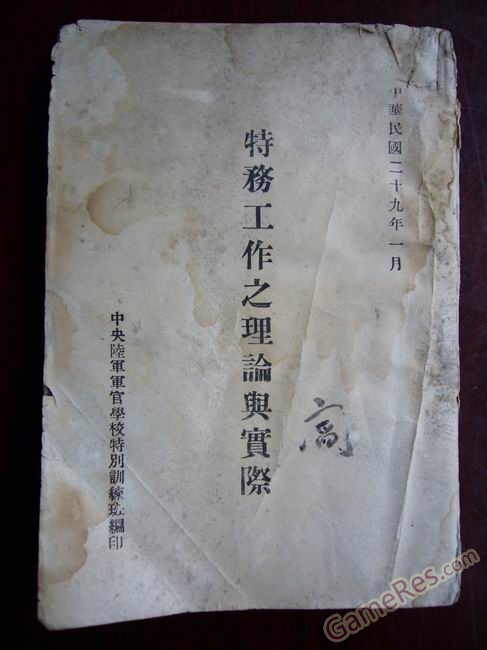 中華民國二十九年一月
特務工作之理論與實際
高
中央陸軍軍官學校特別訓練班編印
GameRes.com